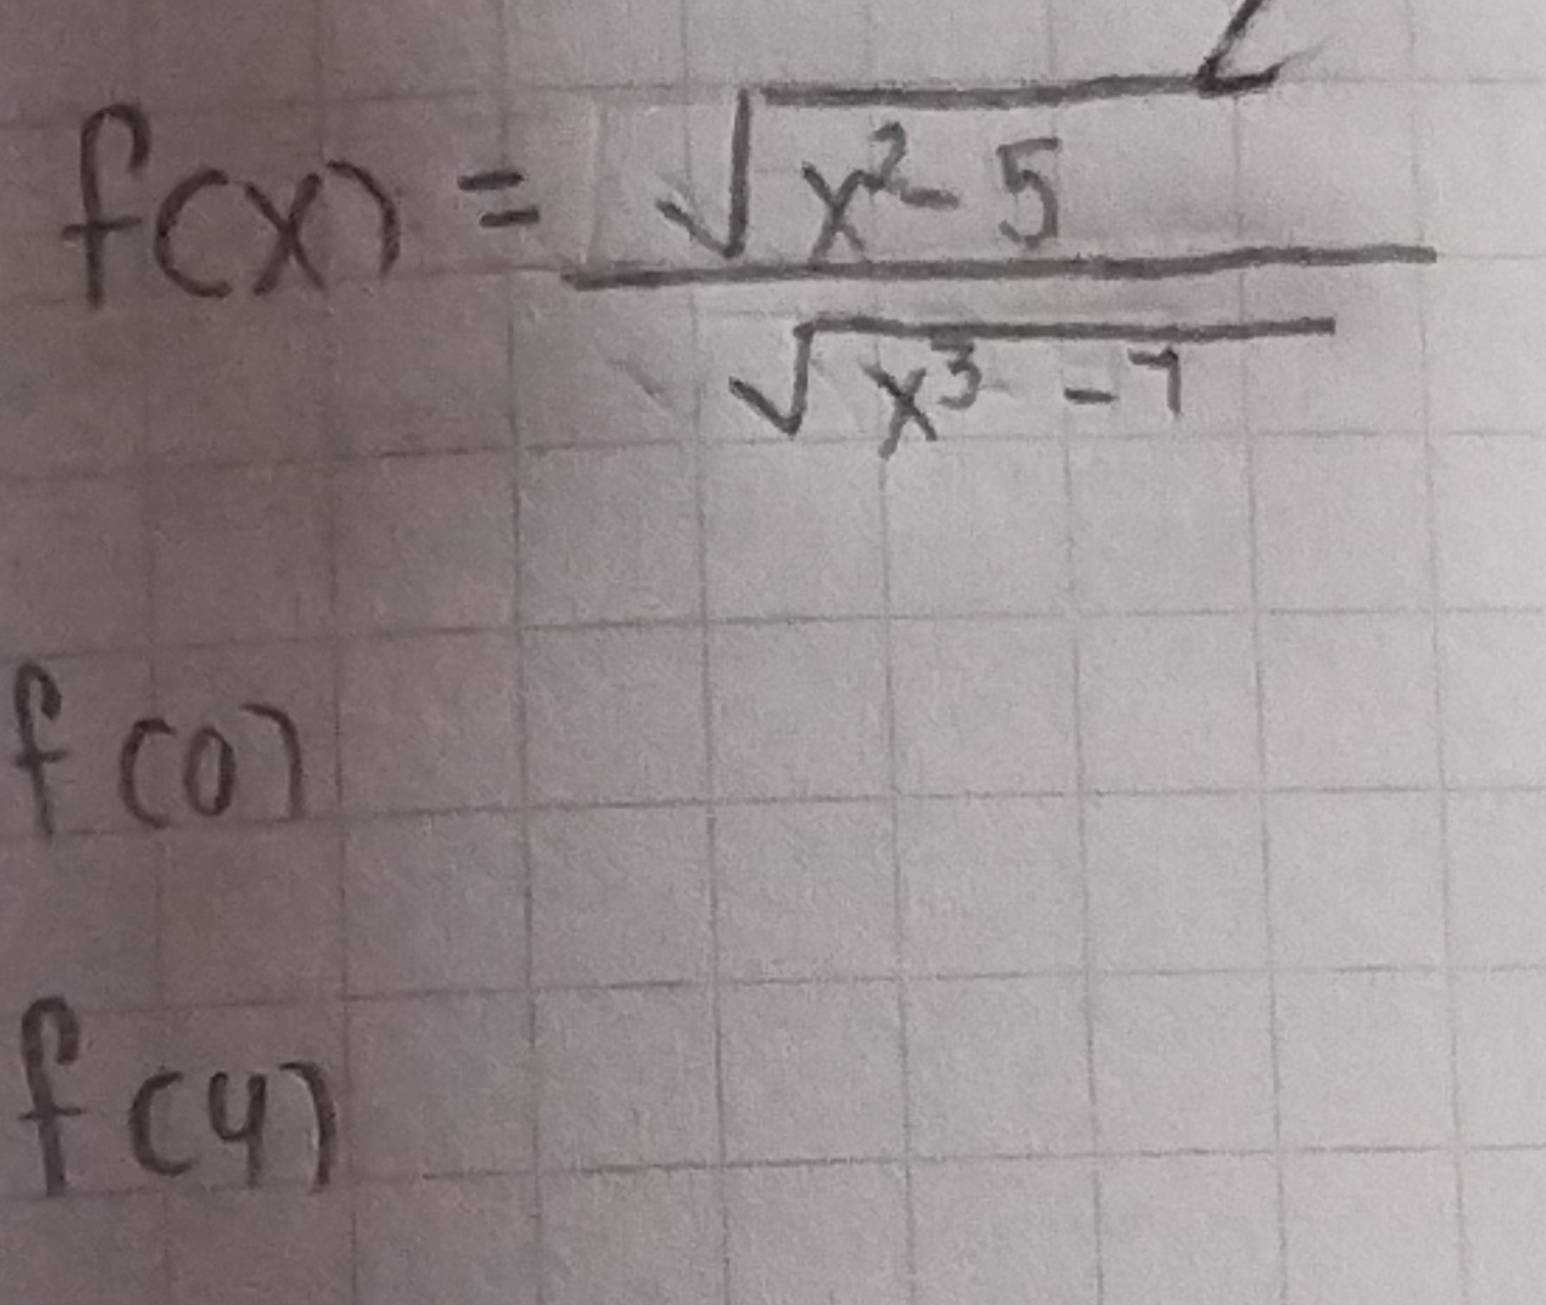 f(x) = √(x² - 5) / √(x³ - 7)
f(0)
f(4)